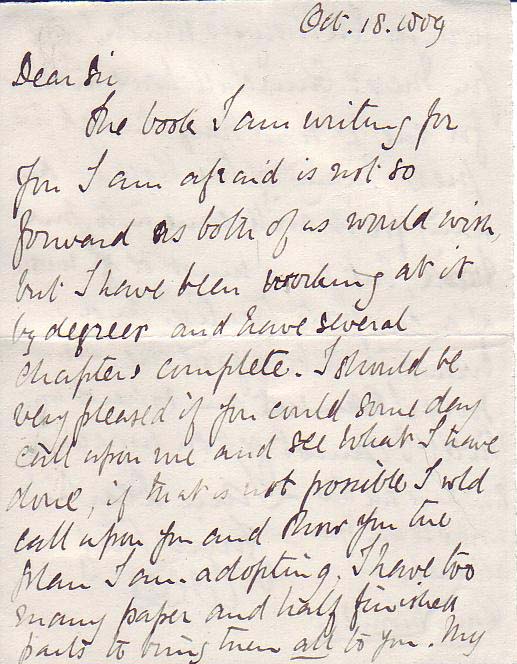 Oct. 18. 1909
Dear Sir
The book I am writing for
you I am afraid is not so
forward as both of us would wish,
but I have been working at it
by degrees and have several
chapters complete. I should be
very pleased if you could some day
call upon me and see what I have
done, if that is not possible I wld
call upon you and show you the
plan I am adopting. I have too
many paper and half finished
parts to bring them all to you. My